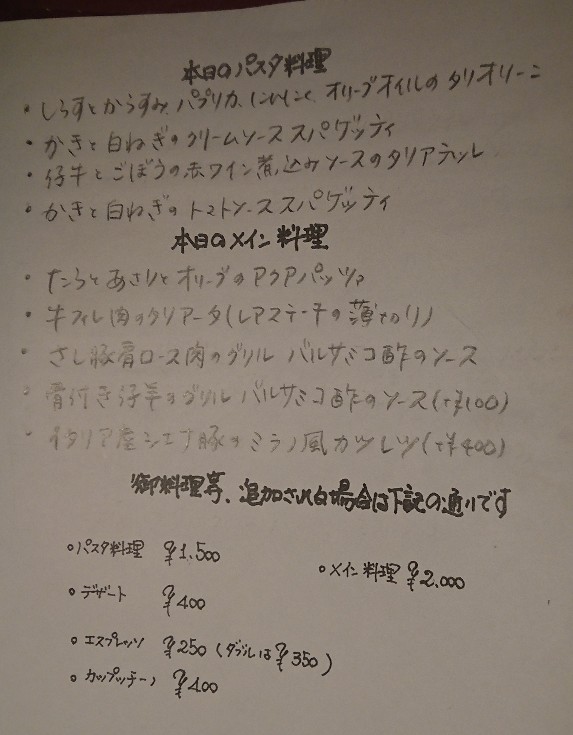 本日のパスタ料理
・しらすとからすみ、パプリカ、にんにく、オリーブオイルのタリオリーニ
・かきと白ねぎのクリームソーススパゲッティ
・仔牛とごぼうの赤ワイン煮込みソースのタリアテッレ
・かきと白ねぎのトマトソーススパゲッティ
本日のメイン料理
・たらとあさりとオリーブのアクアパッツァ
・牛フィレ肉のタリアータ(レアステーキの薄切り)
・さし豚肩ロース肉のグリル バルサミコ酢のソース
・骨付き仔羊のグリル バルサミコ酢のソース(+¥100)
・イタリア産シエナ豚のミラノ風カツレツ(+¥400)
御料理等、追加され白場合は下記の通りです
・パスタ料理 ¥1,500
・メイン料理 ¥2,000
・デザート ¥400
・エスプレッソ ¥250(ダブルは¥350)
・カップッチーノ ¥400